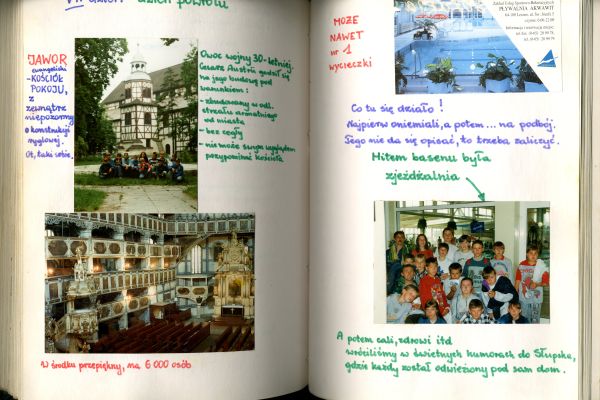 dzień powrotu
JAWOR
ewangelicki
-KOŚCIÓŁ
POKOJU,
z
zewnątrz
niepozorny
o konstrukcji
ryglowej.
Ot, taki sobie.
Owoc wojny 30-letniej
Cesarz Austrii godził się
na jego budowę pod
warunkiem:
- zbudowany w odl.
strzału armatniego
od miasta
- bez cegły
- nie może swym wyglądem
przypominać kościoła
W środku przepiękny, na 6 000 osób
MOŻE
NAWET
nr 1
wycieczki
Zakład Usług Sportowo-Rekreacyjnych
PŁYWALNIA AKWAWIT
64-100 Leszno, ul.
czynna 6.00-22.00
Co tu się działo!
Najpierw oniemiali, a potem ... na podbój.
Tego nie da się opisać, to trzeba zaliczyć.
Hitem basenu była
zjeżdżalnia
A potem cali, zdrowi itd
wróciliśmy w świetnych humorach do Słupska,
gdzie każdy został odwieziony pod sam dom.